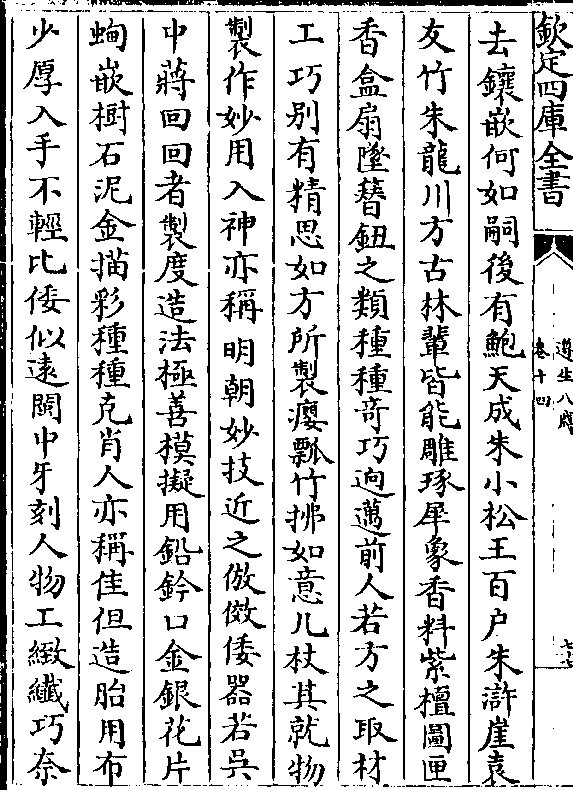 欽定四庫全書
遵生八牋
卷十四
去鑲嵌何如嗣後有鮑天成朱小松王百户朱滸崖袁
友竹朱龍川方古林輩皆能雕琢犀象香料紫檀圖匣
香盒扇墜簮鈕之類種種竒巧逈邁前人若方之取材
工巧别有精思如方所製癭瓢竹拂如意几杖其就物
製作妙用入神亦稱明朝妙技近之倣傚倭器若吳
中蔣回回者製度造法極善模擬用鉛鈐口金銀花片
蜔嵌樹石泥金描彩種種克肖人亦稱佳但造胎用布
少厚入手不輕比倭似遠閩中牙刻人物工緻纎巧奈